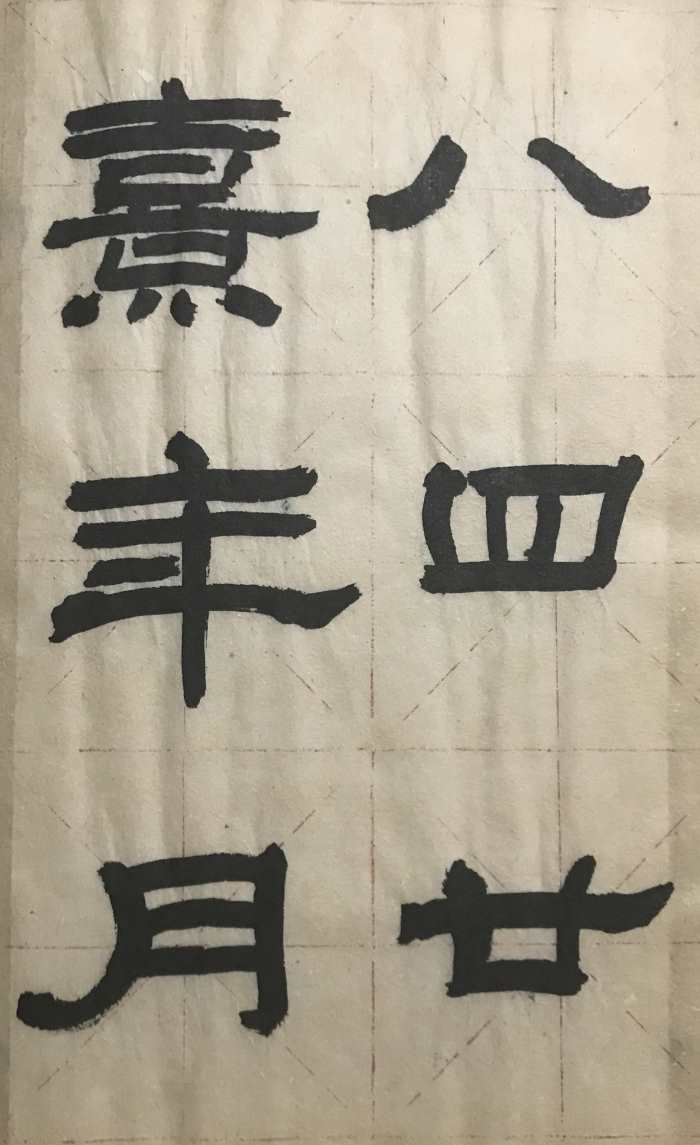 熹八
年四
月廿